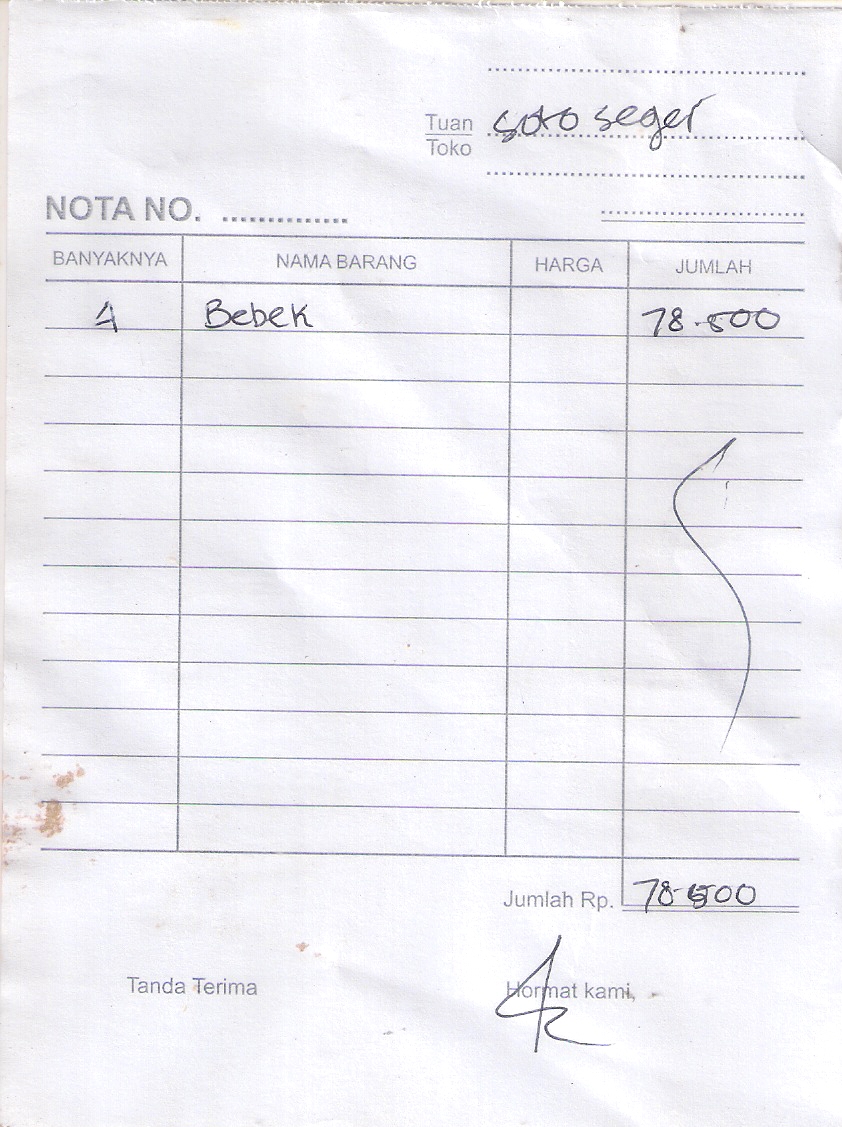 Tuan soto seger
Toko
NOTA NO. ..............
BANYAKNYA NAMA BARANG HARGA JUMLAH
Bebek 78.500
Jumlah Rp. 78.500
Tanda Terima Hormat kami,